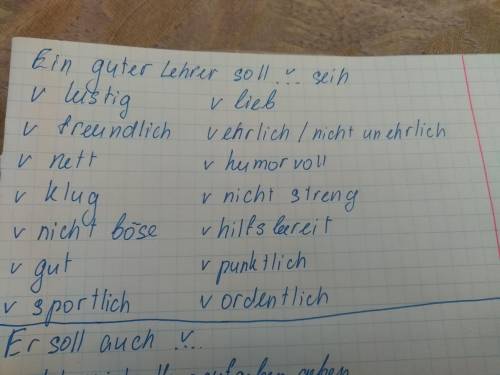 Ein guter Lehrer soll ..v.. sein
v lustig v lieb
v freundlich v ehrlich / nicht unehrlich
v nett v humorvoll
v klug v nicht streng
v nicht böse v hilfsbereit
v gut v punktlich
v sportlich v ordentlich
Er soll auch v...
geben